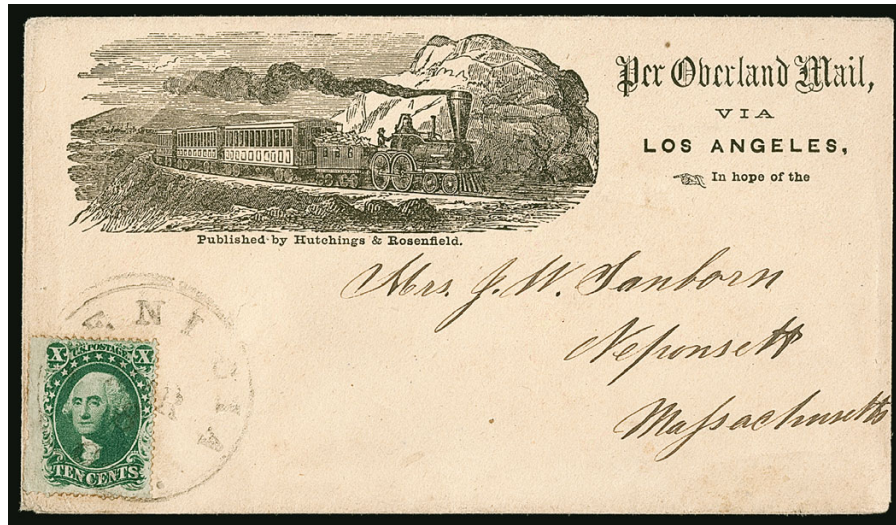 Per Overland Mail,
VIA
LOS ANGELES,
In hope of the
Published by Hutchings & Rosenfield.
Mrs. J. W. Sanborn
Neponsett
Massachusetts
ENICIA
X U.S. POSTAGE X
TEN CENTS